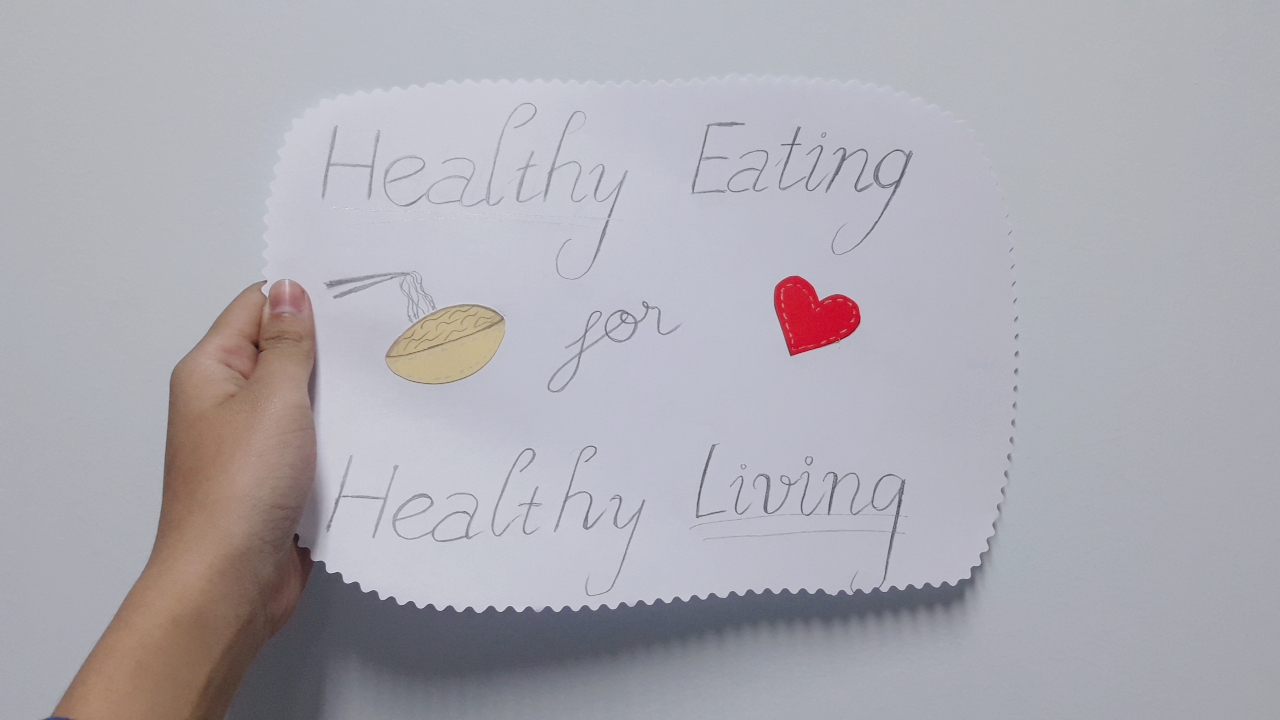 Healthy Eating
for
Healthy Living